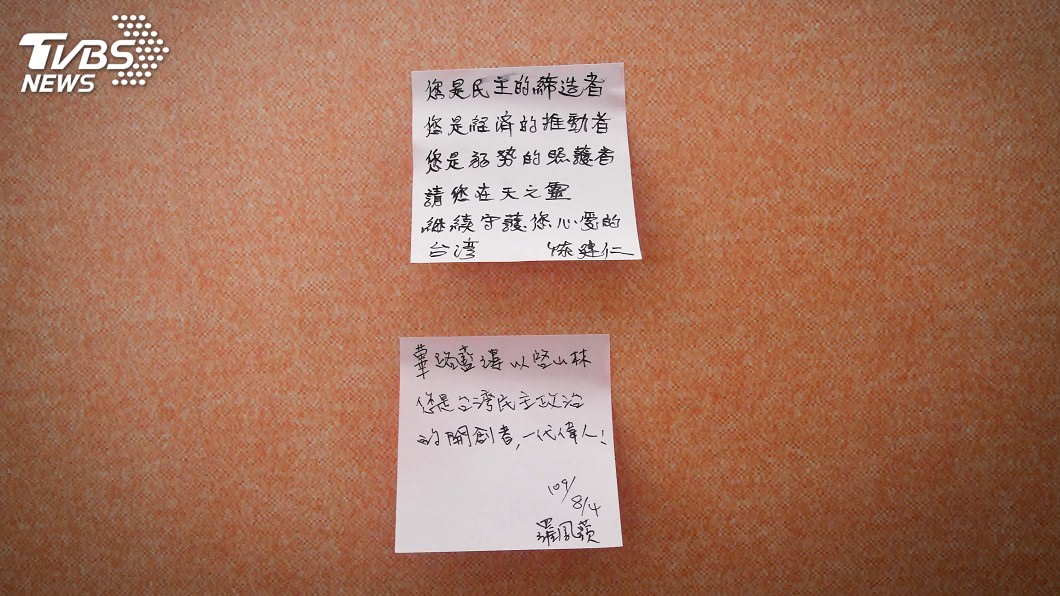 TVBS
NEWS
您是民主的締造者
您是経濟的推動者
您是弱勢的照護者
請您在天之靈
継續守護您心愛的
台湾 陳建仁
蓽路藍褸以啓山林
您是台湾民主政治
的開創者,一代偉人!
109/
8/4
羅鳳蘋